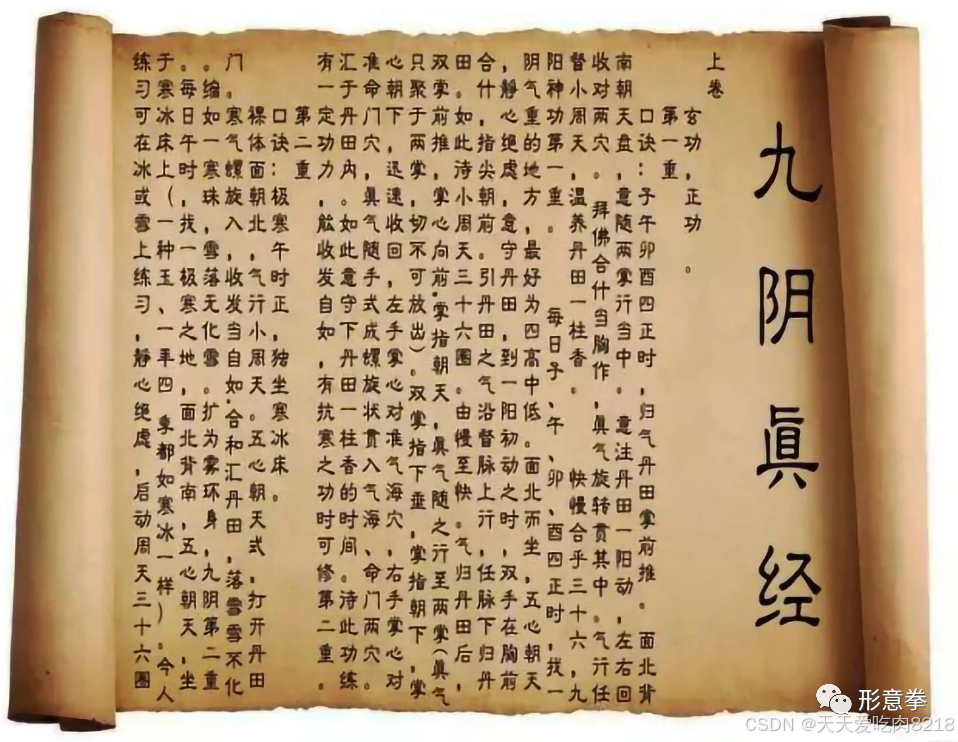 九阴眞经
上卷
玄功,正功。
第一重,
口诀:子午卯酉四正时,归气丹田掌前推。面北背
南朝天盘,意随两掌行当中。意注丹田一阳动,左右回
收对两穴。,拜佛合什当胸作,眞气旋转贯其中。气行任
督小周天,温养丹田一柱香。快慢合乎三十六,九
阳神功第一重。每日子、午、卯、酉四正时,找一
阴气重的地方,最好为四高中低。面北而坐,五心朝天
,静心绝虑,意守丹田,到一阳初动之时,双手在胸前
合什,指尖朝前。引丹田之气沿督脉上行,任脉下归丹
田。如此诗小周天三十六圈。由慢至快。气归丹田后,
双掌前推,掌心向前,掌指朝天,眞气随之行至两掌(眞气
只聚于两掌,切不可放出)。双掌指下垂,掌指朝下,掌
心朝下,迅速收回,左手掌心对准气海穴,右手掌心对
准命门穴,眞气随手式成螺旋状贯入气海、命门两穴。
汇于丹田内。如此意守下丹田一柱香的时间。诗此功练
有一定功力,能收发自如,有抗寒之功时可修第二重。
第二重
口诀:极寒午时正,独坐寒冰床。
裸体面朝北,气行小周天。五心朝天式,打开丹田
门 寒气螺旋入,收发当自如,合和汇丹田,落雪雪不化
。缩如一寒珠,雪落无化雪。扩为雾环身,九阴第二重
。每日午时,找一极寒之地,面北背南,五心朝天,坐
于寒冰床上(一种玉、一年四季都如寒冰一样)。今人
练习可在冰或雪上练习,静心绝虑,启动周天三十六圈
形意拳
CSDN @天天爱吃肉8218